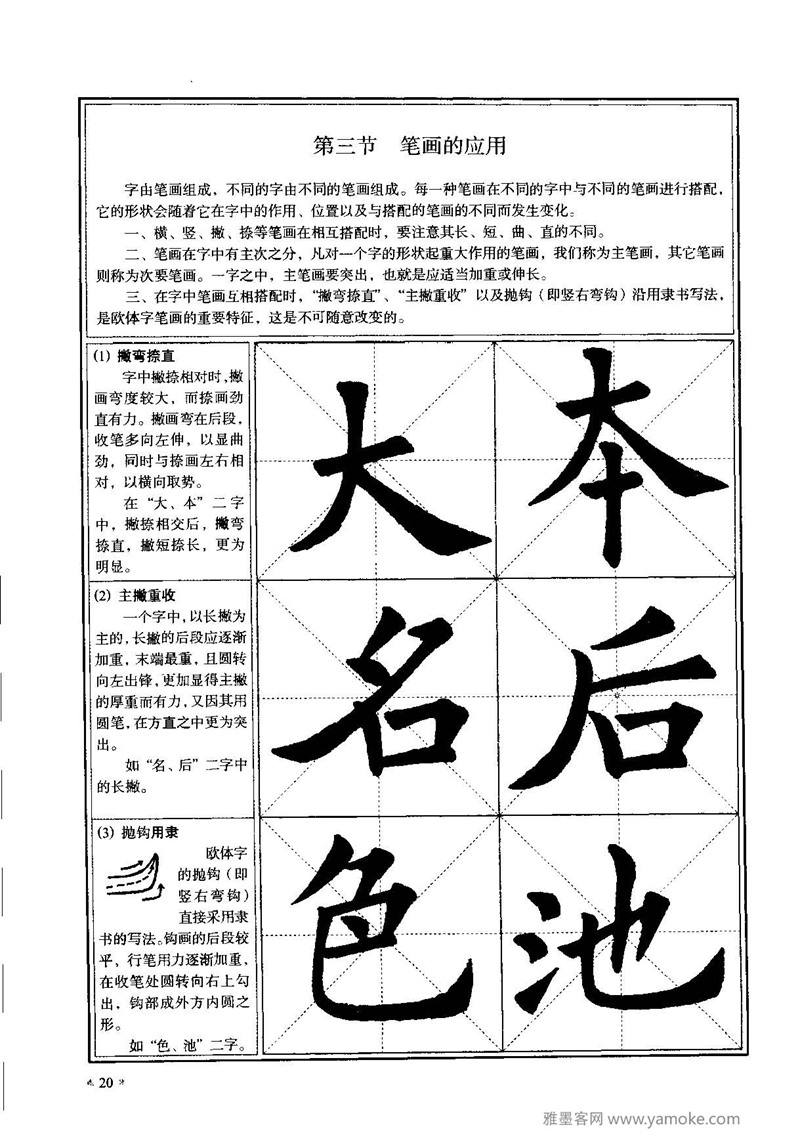 第三节 笔画的应用
字由笔画组成，不同的字由不同的笔画组成。每一种笔画在不同的字中与不同的笔画进行搭配，
它的形状会随着它在字中的作用、位置以及与搭配的笔画的不同而发生变化。
一、横、竖、撇、捺等笔画在相互搭配时，要注意其长、短、曲、直的不同。
二、笔画在字中有主次之分，凡对一个字的形状起重大作用的笔画，我们称为主笔画，其它笔画
则称为次要笔画。一字之中，主笔画要突出，也就是应适当加重或伸长。
三、在字中笔画互相搭配时，“撇弯捺直”、“主撇重收”以及抛钩（即竖右弯钩）沿用隶书写法，
是欧体字笔画的重要特征，这是不可随意改变的。
(1) 撇弯捺直
字中撇捺相对时，撇
画弯度较大，而捺画劲
直有力。撇画弯在后段，
收笔多向左伸，以显曲
劲，同时与捺画左右相
对，以横向取势。
在“大、本”二字
中，撇捺相交后，撇弯
捺直，撇短捺长，更为
明显。
大 本
(2) 主撇重收
一个字中，以长撇为
主的，长撇的后段应逐渐
加重，末端最重，且圆转
向左出锋，更加显得主撇
的厚重而有力，又因其用
圆笔，在方直之中更为突
出。
如“名、后”二字中
的长撇。
名 后
(3) 抛钩用隶
欧体字
的抛钩（即
竖右弯钩）
直接采用隶
书的写法。钩画的后段较
平，行笔用力逐渐加重，
在收笔处圆转向右上勾
出，钩部成外方内圆之
形。
如“色、池”二字。
色 池
20
雅墨客网 www.yamoke.com